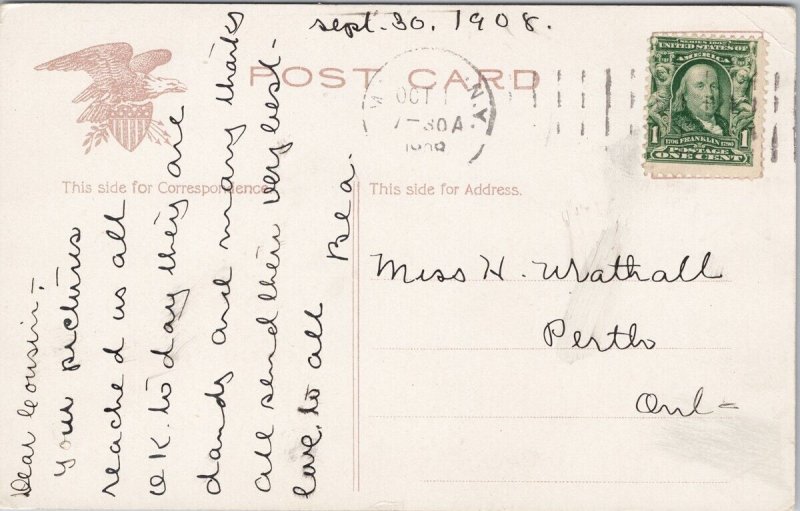 Sept. 30. 1908.
POST CARD
OCT 1
7-30 A
1908
N.Y.
SERIES 1902
UNITED STATES OF AMERICA
1 1
1706 FRANKLIN 1790
POSTAGE
ONE CENT
This side for Correspondence.
This side for Address.
Dear Cousin:-
Your pictures
reached us all
O.K. to day they are
dandy and many thanks
all send their very best-
love to all
Bea.
Miss H. Wrathall
Perth
Ont-